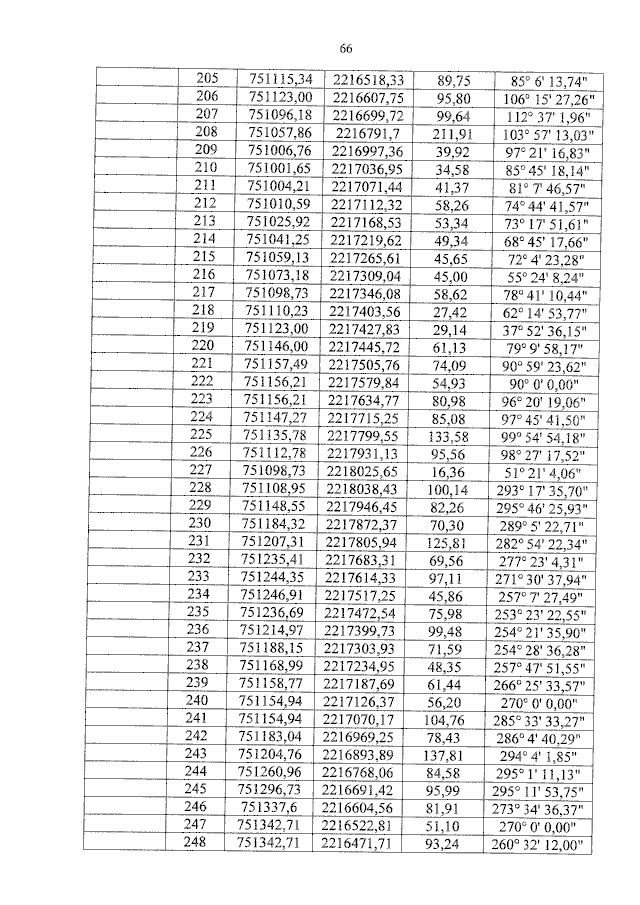 66
205 751115,34 2216518,33 89,75 85° 6' 13,74"
206 751123,00 2216607,75 95,80 106° 15' 27,26"
207 751096,18 2216699,72 99,64 112° 37' 1,96"
208 751057,86 2216791,7 211,91 103° 57' 13,03"
209 751006,76 2216997,36 39,92 97° 21' 16,83"
210 751001,65 2217036,95 34,58 85° 45' 18,14"
211 751004,21 2217071,44 41,37 81° 7' 46,57"
212 751010,59 2217112,32 58,26 74° 44' 41,57"
213 751025,92 2217168,53 53,34 73° 17' 51,61"
214 751041,25 2217219,62 49,34 68° 45' 17,66"
215 751059,13 2217265,61 45,65 72° 4' 23,28"
216 751073,18 2217309,04 45,00 55° 24' 8,24"
217 751098,73 2217346,08 58,62 78° 41' 10,44"
218 751110,23 2217403,56 27,42 62° 14' 53,77"
219 751123,00 2217427,83 29,14 37° 52' 36,15"
220 751146,00 2217445,72 61,13 79° 9' 58,17"
221 751157,49 2217505,76 74,09 90° 59' 23,62"
222 751156,21 2217579,84 54,93 90° 0' 0,00"
223 751156,21 2217634,77 80,98 96° 20' 19,06"
224 751147,27 2217715,25 85,08 97° 45' 41,50"
225 751135,78 2217799,55 133,58 99° 54' 54,18"
226 751112,78 2217931,13 95,56 98° 27' 17,52"
227 751098,73 2218025,65 16,36 51° 21' 4,06"
228 751108,95 2218038,43 100,14 293° 17' 35,70"
229 751148,55 2217946,45 82,26 295° 46' 25,93"
230 751184,32 2217872,37 70,30 289° 5' 22,71"
231 751207,31 2217805,94 125,81 282° 54' 22,34"
232 751235,41 2217683,31 69,56 277° 23' 4,31"
233 751244,35 2217614,33 97,11 271° 30' 37,94"
234 751246,91 2217517,25 45,86 257° 7' 27,49"
235 751236,69 2217472,54 75,98 253° 23' 22,55"
236 751214,97 2217399,73 99,48 254° 21' 35,90"
237 751188,15 2217303,93 71,59 254° 28' 36,28"
238 751168,99 2217234,95 48,35 257° 47' 51,55"
239 751158,77 2217187,69 61,44 266° 25' 33,57"
240 751154,94 2217126,37 56,20 270° 0' 0,00"
241 751154,94 2217070,17 104,76 285° 33' 33,27"
242 751183,04 2216969,25 78,43 286° 4' 40,29"
243 751204,76 2216893,89 137,81 294° 4' 1,85"
244 751260,96 2216768,06 84,58 295° 1' 11,13"
245 751296,73 2216691,42 95,99 295° 11' 53,75"
246 751337,6 2216604,56 81,91 273° 34' 36,37"
247 751342,71 2216522,81 51,10 270° 0' 0,00"
248 751342,71 2216471,71 93,24 260° 32' 12,00"